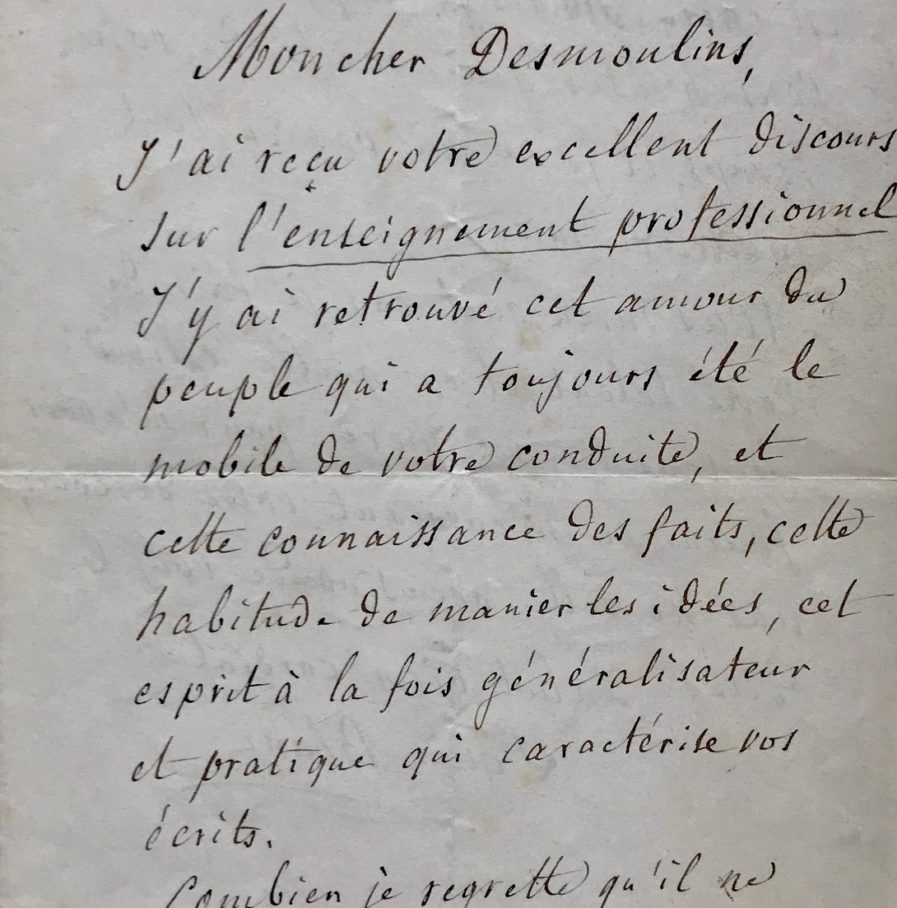 Mon cher Desmoulins,
J'ai reçu votre excellent discours
sur l'enseignement professionnel
J'y ai retrouvé cet amour du
peuple qui a toujours été le
mobile de votre conduite, et
cette connaissance des faits, cette
habitude de manier les idées, cet
esprit à la fois généralisateur
et pratique qui caractérise vos
écrits.
Combien je regrette qu'il ne